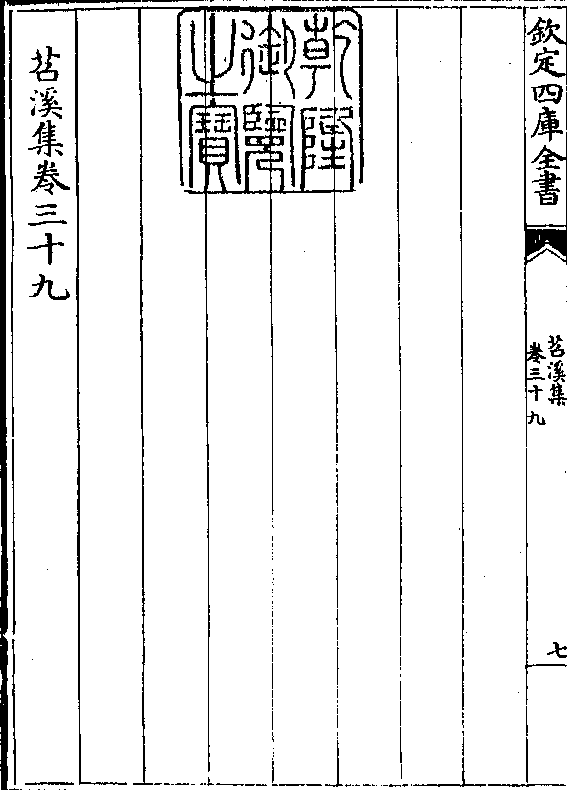 欽定四庫全書
苕溪集
卷三十九
七
乾隆
御覽
之寶
苕溪集卷三十九